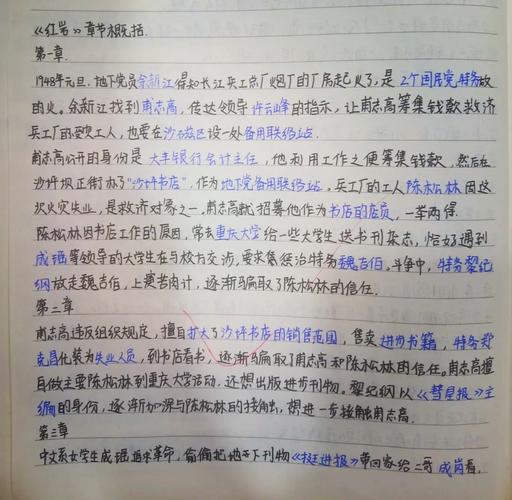 《红岩》章节概括.
第一章.
1948年元旦,地下党员余新江得知长江兵工总厂烟厂的厂房起火了,是2个国民党特务放
的火。余新江找到甫志高,传达领导许云峰的指示,让甫志高筹集钱款救济
兵工厂的受灾工人,也要在沙磁区设一处备用联络站.
甫志高公开的身份是大丰银行会计主任,他利用工作之便筹集钱款,然后在
沙坪坝正街办了“沙坪书店”,作为地下党备用联络站,兵工厂的工人陈松林因这
次火灾失业,是救济对象之一,甫志高就招募他作为书店的店员,一举两得.
陈松林因书店工作的原因,常去重庆大学给一些大学生送书刊杂志,恰好遇到
成瑶等领导的大学生在与校方交涉,要求集惩治特务魏吉伯。斗争中,特务黎纪
纲放走魏吉伯,上演苦肉计,逐渐骗取了陈松林的信任.
第二章
甫志高违反组织规定,擅自扩大了沙坪书店的销售范围,售卖进步书籍,特务郑
克昌化装为失业人员,到书店看书,逐渐骗取了甫志高和陈松林的信任。甫志高擅
自做主要陈松林到重庆大学活动,还想出版进步刊物。黎纪纲以《彗星报》主
编的身份,逐渐加深与陈松林的接触,想进一步接触甫志高.
第三章
中文系女学生成瑶追求革命,偷偷把地下刊物《挺进报》带回家给二哥成岗看,